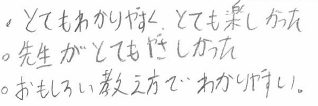 ・とてもわかりやすく、とても楽しかった
○先生がとてもやさしかった
○おもしろい教え方でわかりやすい。